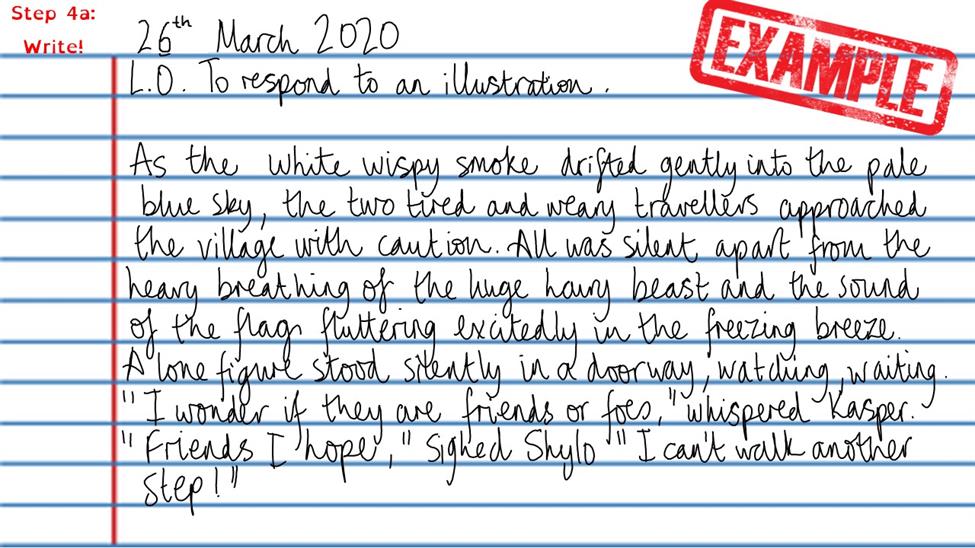 Step 4a:
Write!
26th March 2020
L.O. To respond to an illustration.
EXAMPLE
As the white wispy smoke drifted gently into the pale
blue sky, the two tired and weary travellers approached
the village with caution. All was silent apart from the
heavy breathing of the huge hairy beast and the sound
of the flags fluttering excitedly in the freezing breeze.
A lone figure stood silently in a doorway, watching, waiting.
"I wonder if they are friends or foes," whispered Kasper.
"Friends I hope," Sighed Shylo "I can't walk another
step!"